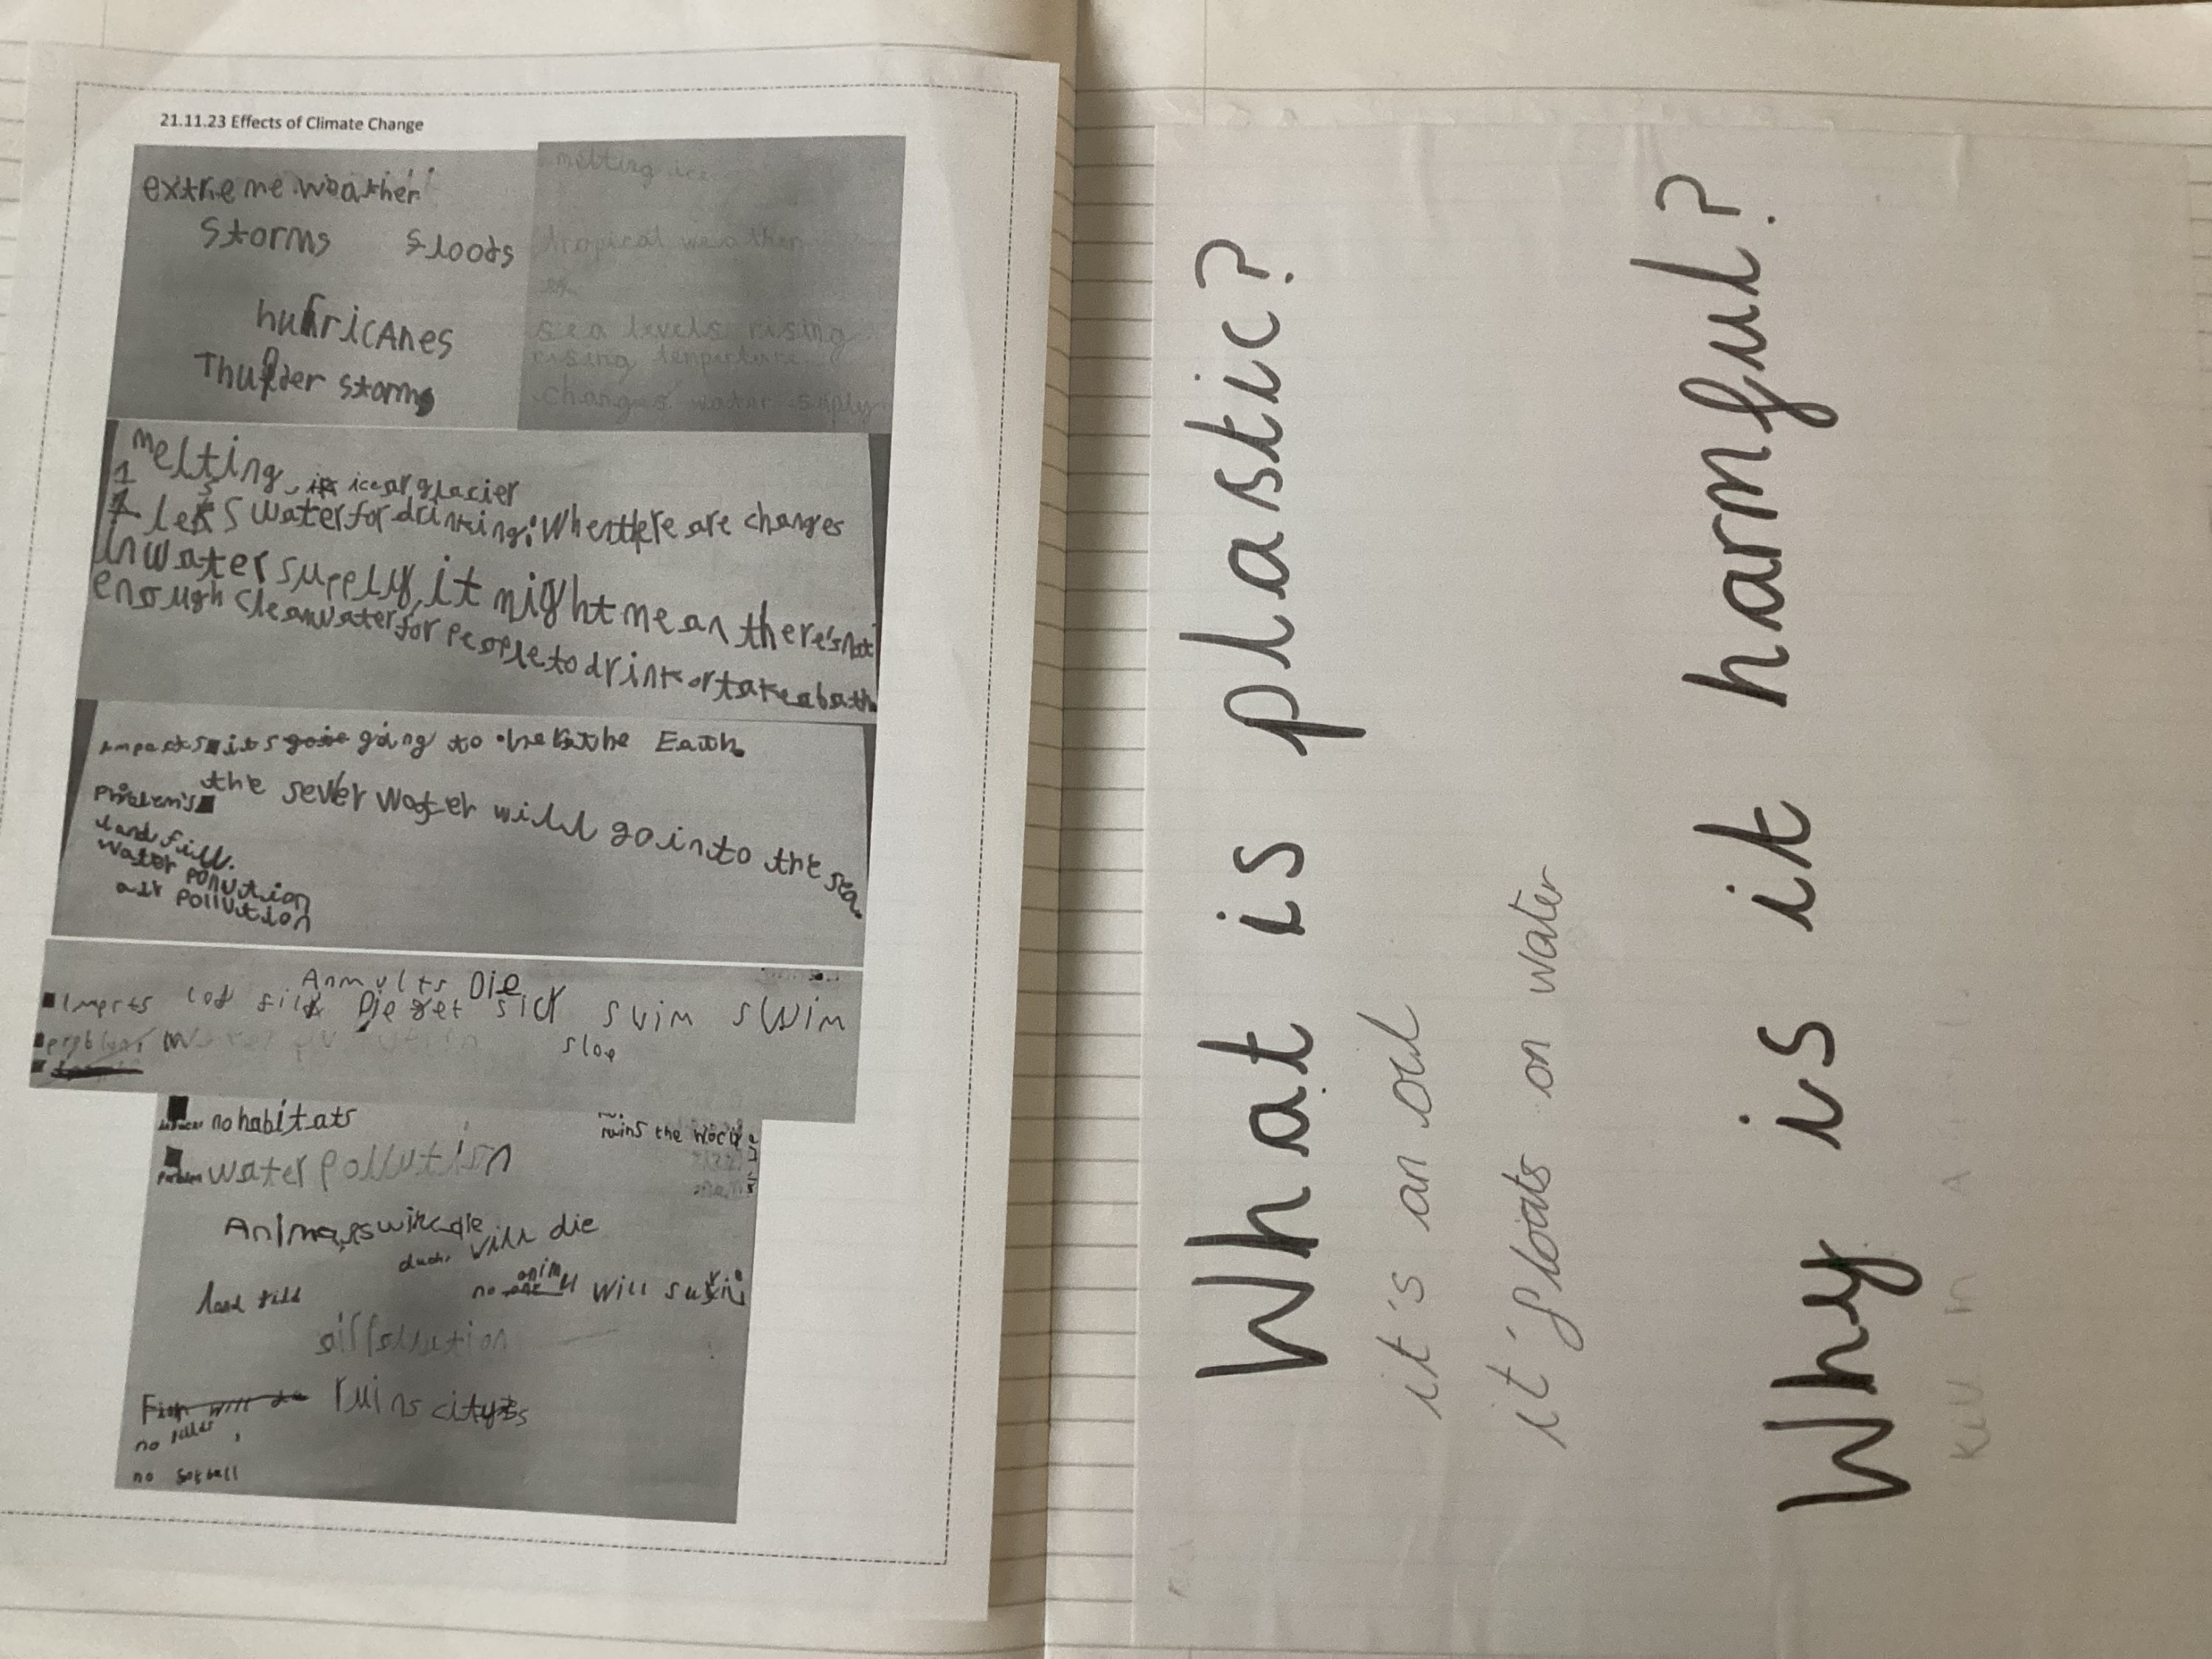 21.11.23 Effects of Climate Change
extreme weather
storms floods
hurricanes
Thunder storms
melting ice
tropical weather
sea levels rising
rising tempriture
changes water suply
melting ice or glacier
1 less water for drinking: When there are changes
in water supply, it might mean there's not
enough clean water for people to drink or take a bath
impacts its going to heat the Earth.
the sewer water will go into the sea.
Problem's
land fill.
water pollution
air pollution
Anmults Die
Die get sick swim swim
slow
no habitats
ruins the world
Problem water pollution
Animals will die
will die
land fill
no will
ruins citys
no
What is plastic?
it's an oil
it floats on water
Why is it harmful?